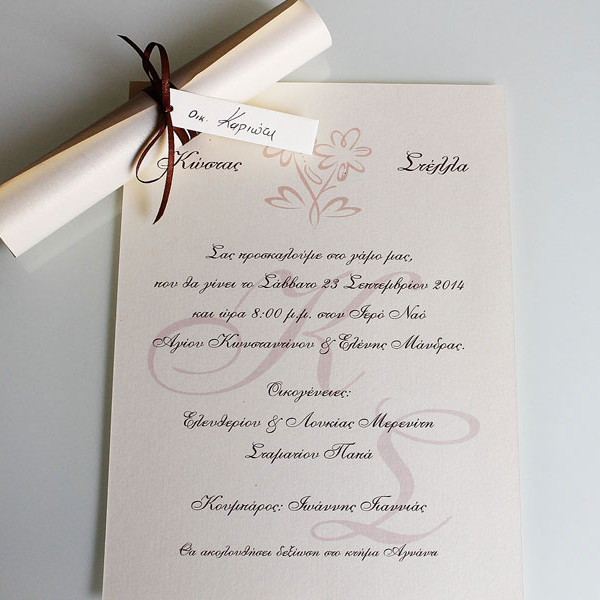 Οικ. Καριώτη
Κώστας Στέλλα
Σας προσκαλούμε στο γάμο μας,
που θα γίνει το Σάββατο 23 Σεπτεμβρίου 2014
και ώρα 8:00 μ.μ. στον Ιερό Ναό
Αγίου Κωνσταντίνου & Ελένης Μάνδρας.
Κ
Οικογένειες:
Ελευθερίου & Λουκίας Μερενίτη
Σταματίου Παπά
Σ
Κουμπάρος: Ιωάννης Γιαννιάς
Θα ακολουθήσει δεξίωση στο κτήμα Αγνάντι